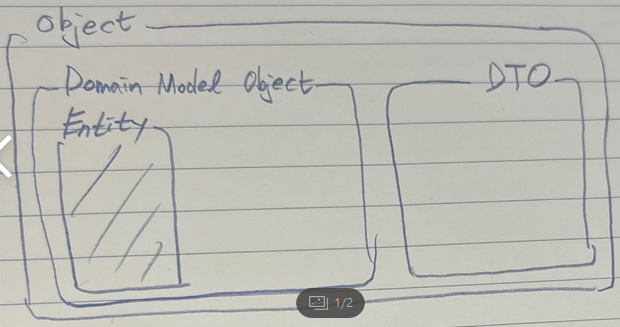 Object
Domain Model Object
DTO
Entity
1/2